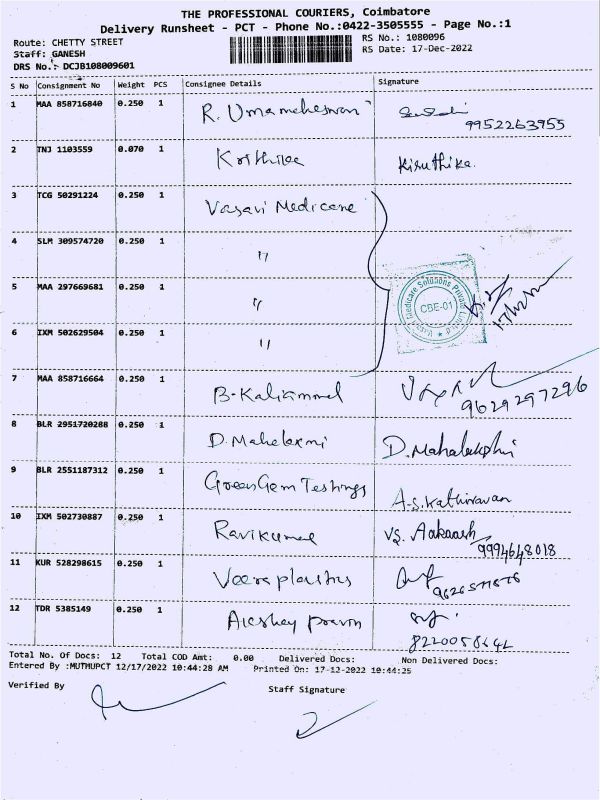 THE PROFESSIONAL COURIERS, Coimbatore
Delivery Runsheet - PCT - Phone No.:0422-3505555 - Page No.:1
Route: CHETTY STREET
RS No.: 1080096
Staff: GANESH
RS Date: 17-Dec-2022
DRS No.: DCJB108009601
S No Consignment No Weight PCS Consignee Details Signature
1 MAA 858716840 0.250 1 R. Umamaheswari
9952263955
2 TNJ 1103559 0.070 1 Krithika Kiruthika.
3 TCG 50291224 0.250 1 Vasavi Medicare
4 SLM 309574720 0.250 1 "
5 MAA 297669681 0.250 1 "
Vasavi Medicare Solutions Private Limited
CBE-01
17/12/22
6 IXM 502629504 0.250 1 "
7 MAA 858716664 0.250 1 B. Kaliammal
9629297296
8 BLR 2951720288 0.250 1 D. Mahalaxmi D. Mahalakshmi
9 BLR 2551187312 0.250 1 GreenGem Testings A.S. Kathiravan
10 IXM 502730887 0.250 1 Ravikumar VS. Aakaash
9994648018
11 KUR 528298615 0.250 1 Veera plastics
12 TDR 5385149 0.250 1 Akshay pravin
Total No. Of Docs: 12 Total COD Amt: 0.00 Delivered Docs: Non Delivered Docs:
Entered By :MUTHUPCT 12/17/2022 10:44:28 AM Printed On: 17-12-2022 10:44:25
Verified By
Staff Signature